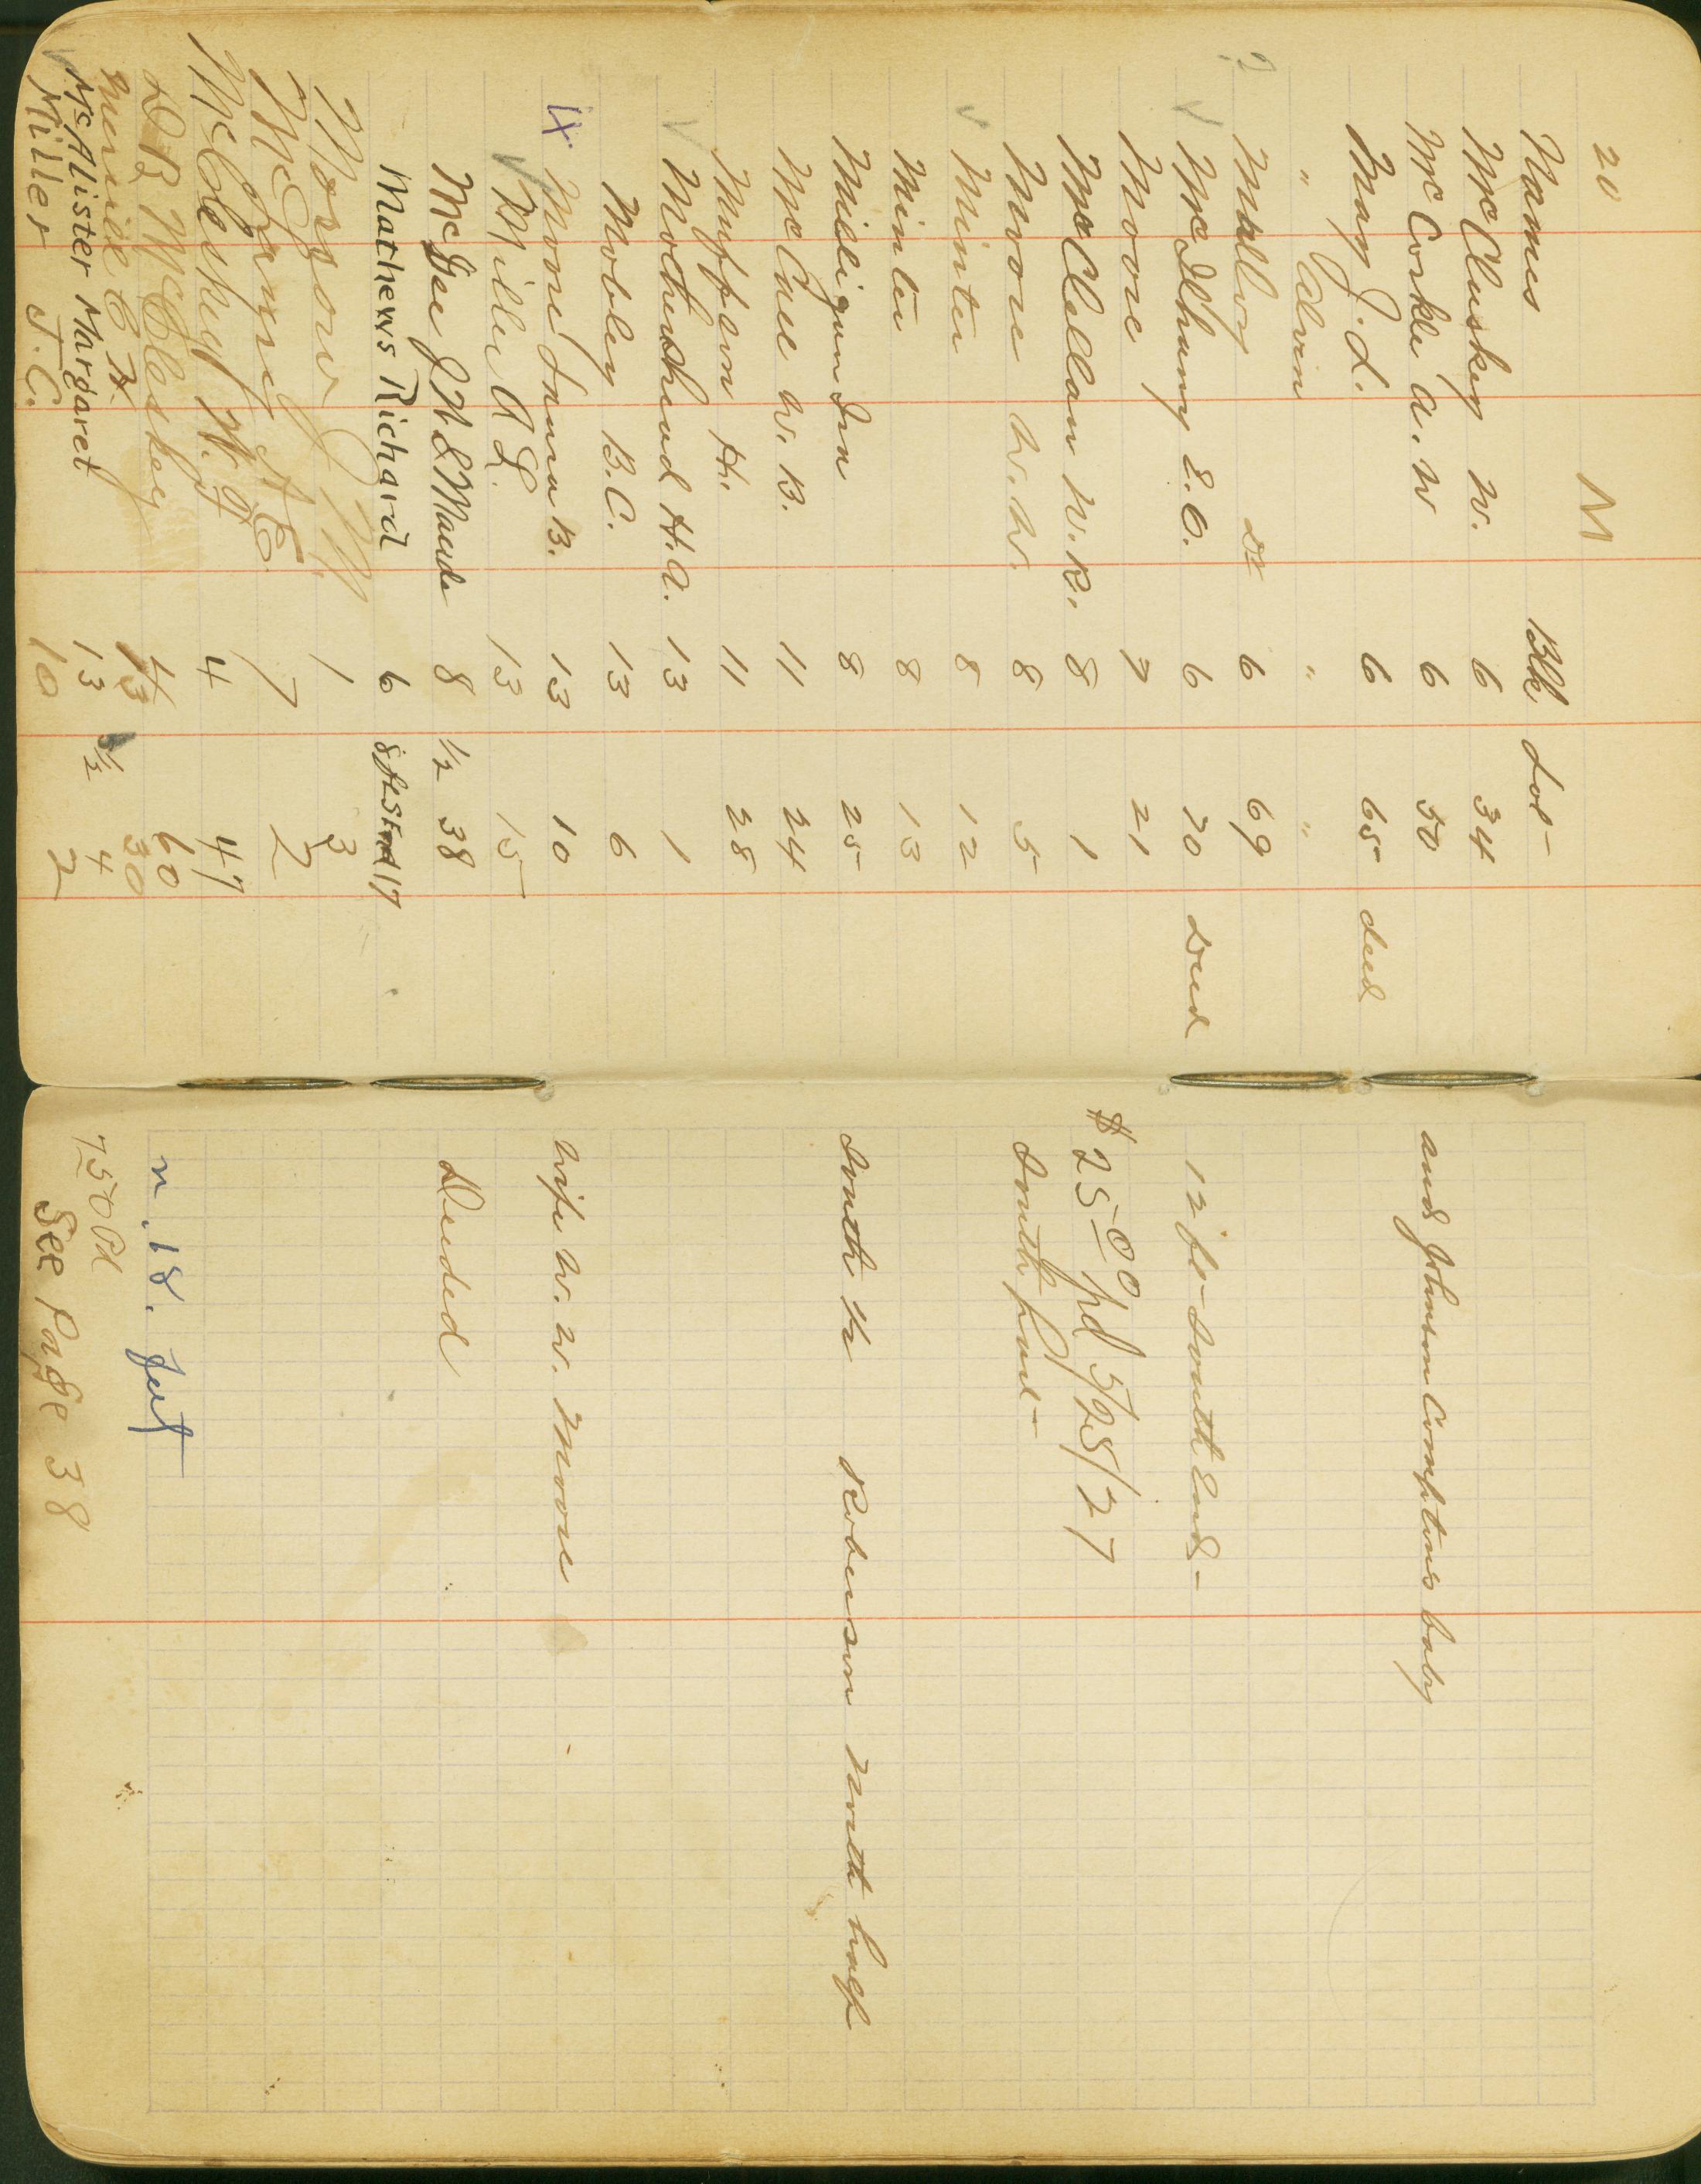 20 M
Names Blk. Lot
McCluskey W. 6 34
McCorkle A. W 6 50 and Johnson Comptons baby
May J. L. 6 65 deed
" Calvin " "
Mulloy 6 69
? McIlhany E. C. 6 70 Deed 12 ft South End
Moore 7 21
McClellan W. R. 8 1 $25.00 pd 5/25/27
Moore W. W. 8 5 South part
Minter 8 12
Minter 8 13
Milligan Ira 8 25 South 1/2 Roberson North half
McCall W. B. 11 24
Muffson H. 11 28
Mothershead H. A. 13 1
Mobley B. C. 13 6
Moore Lama B. 13 10 wife W. W. Moore
Miller A L. 13 15
McGee J N & Maude 8 1/2 38 Deeded
Mathews Richard 6 8 ft S End 17
Morgan J M 1 3
7 2
McCleskey W. J 4 47
D B McCleskey 60 N. 18. feet
13 30
McAlister Margaret 13 1/2 4 7.50 Pd
Miller J. C. 10 2 See Page 38